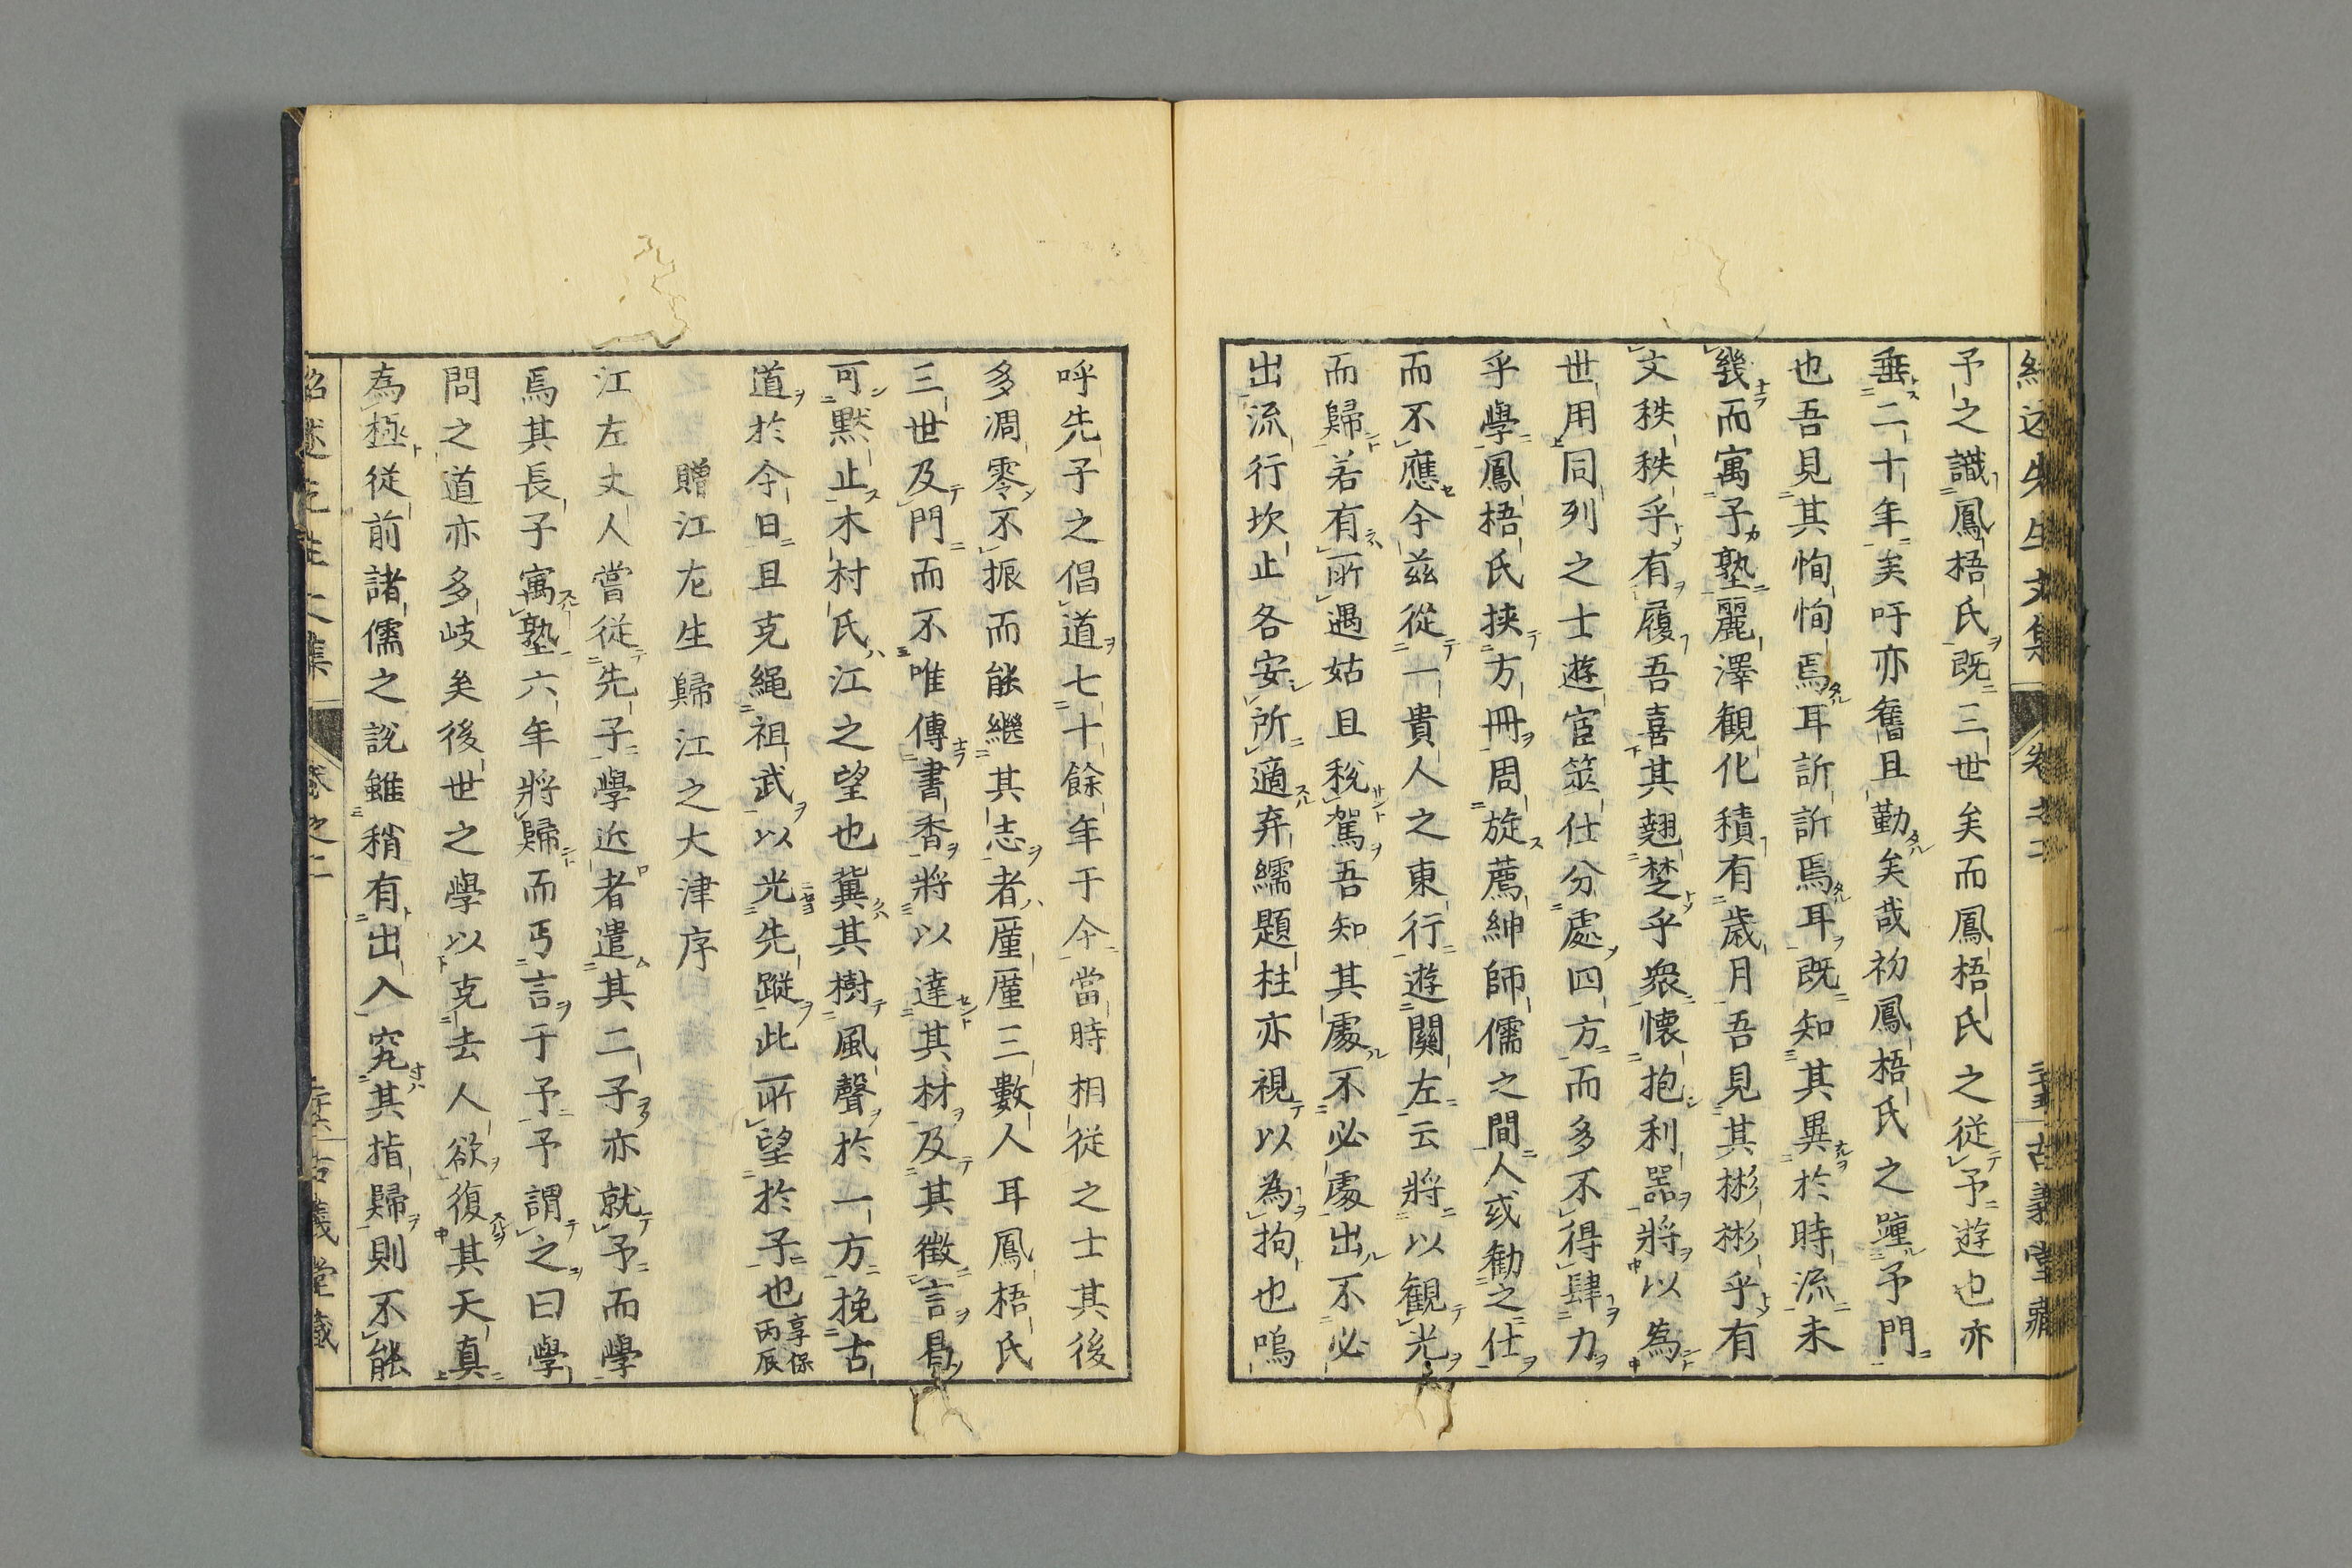 紹述先生文集 卷之二 古義堂藏
予之識鳳梧氏既三世矣而鳳梧氏之從予遊也亦
垂二十年矣吁亦舊且勤矣哉初鳳梧氏之踵予門
也吾見其恂恂焉耳訢訢焉耳既知其異於時流未
幾而寓子塾麗澤観化積有歳月吾見其彬彬乎有
文秩秩乎有履吾喜其翹楚乎衆懐抱利器將以為
世用同列之士遊宦筮仕分處四方而多不得肆力
乎學鳳梧氏挟方冊周旋薦紳師儒之間人或勧之仕
而不應今茲從一貴人之東行遊關左云將以観光
而歸若有所遇姑且稅駕吾知其處不必處出不必
出流行坎止各安所適弃繻題柱亦視以為拘也嗚
呼先子之倡道七十餘年于今當時相從之士其後
多凋零不振而能繼其志者厪厪三數人耳鳳梧氏
三世及門而不唯傳書香將以達其材及其徵言曷
可黙止木村氏江之望也冀其樹風聲於一方挽古
道於今日且克繩祖武以光先蹤此所望於子也享保丙辰
贈江左生歸江之大津序
江左丈人嘗從先子學近者遣其二子亦就予而學
焉其長子寓塾六年將歸而丐言于予予謂之曰學
問之道亦多岐矣後世之學以克去人欲復其天真
為極從前諸儒之説雖稍有出入究其指歸則不能
紹述先生文集 卷之二 古義堂藏